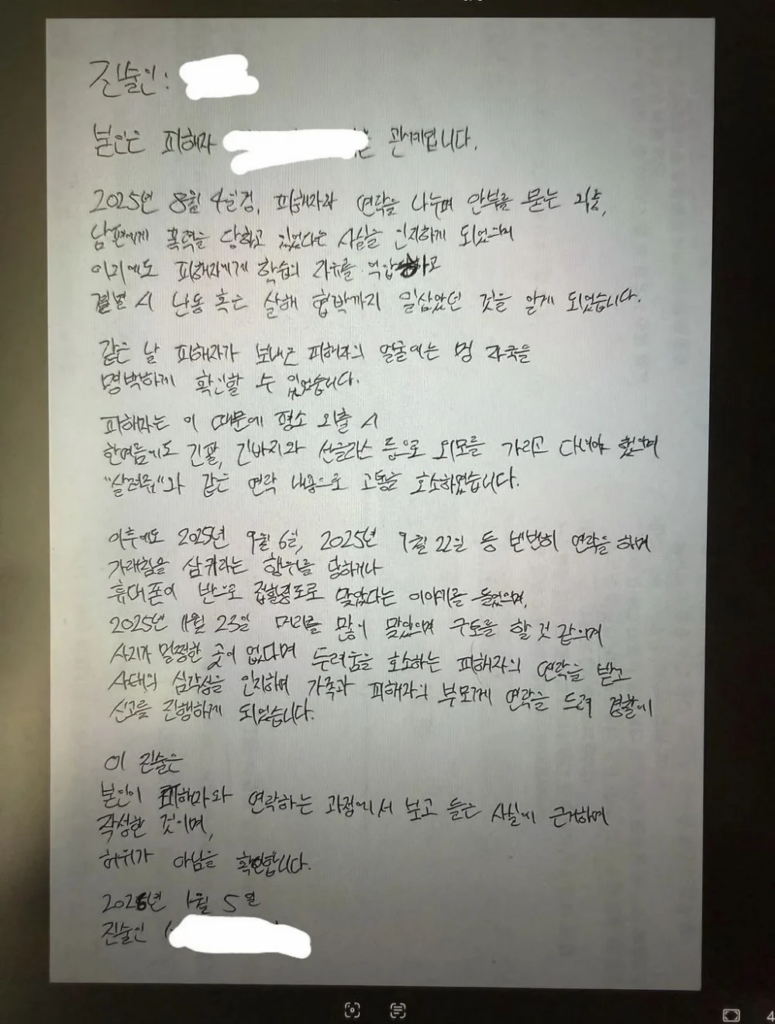 진술인:
본인은 피해자 는 관계입니다.
2025년 8월 4일경, 피해자와 연락을 나누며 안부를 묻던 와중,
남편에게 폭력을 당하고 있었다는 사실을 인지하게 되었으며
이외에도 피해자에게 학습의 자유를 억압하고
결별 시 난동 혹은 살해 협박까지 일삼았던 것을 알게 되었습니다.
같은 날 피해자가 보내준 피해자의 얼굴에는 멍 자국을
명백하게 확인할 수 있었습니다.
피해자는 이 때문에 평소 외출 시
한여름에도 긴팔, 긴바지와 선글라스 등으로 외모를 가리고 다녀야 했으며
"살려줘"와 같은 연락 내용으로 고통을 호소하였습니다.
이후에도 2025년 9월 6일, 2025년 9월 22일 등 빈번히 연락을 하며
가래침을 삼키라는 행위를 당하거나
휴대폰이 반으로 접힐정도로 맞았다는 이야기를 들었으며,
2025년 11월 23일 머리를 많이 맞았으며 구토를 할 것 같으며
사지가 멀쩡한 곳이 없다며 두려움을 호소하는 피해자의 연락을 받고
사태의 심각성을 인지하며 가족과 피해자의 부모께 연락을 드려 경찰에
신고를 진행하게 되었습니다.
이 진술은
본인이 피해자와 연락하는 과정에서 보고 들은 사실에 근거하여
작성한 것이며,
허위가 아님을 확인합니다.
2026년 1월 5일
진술인